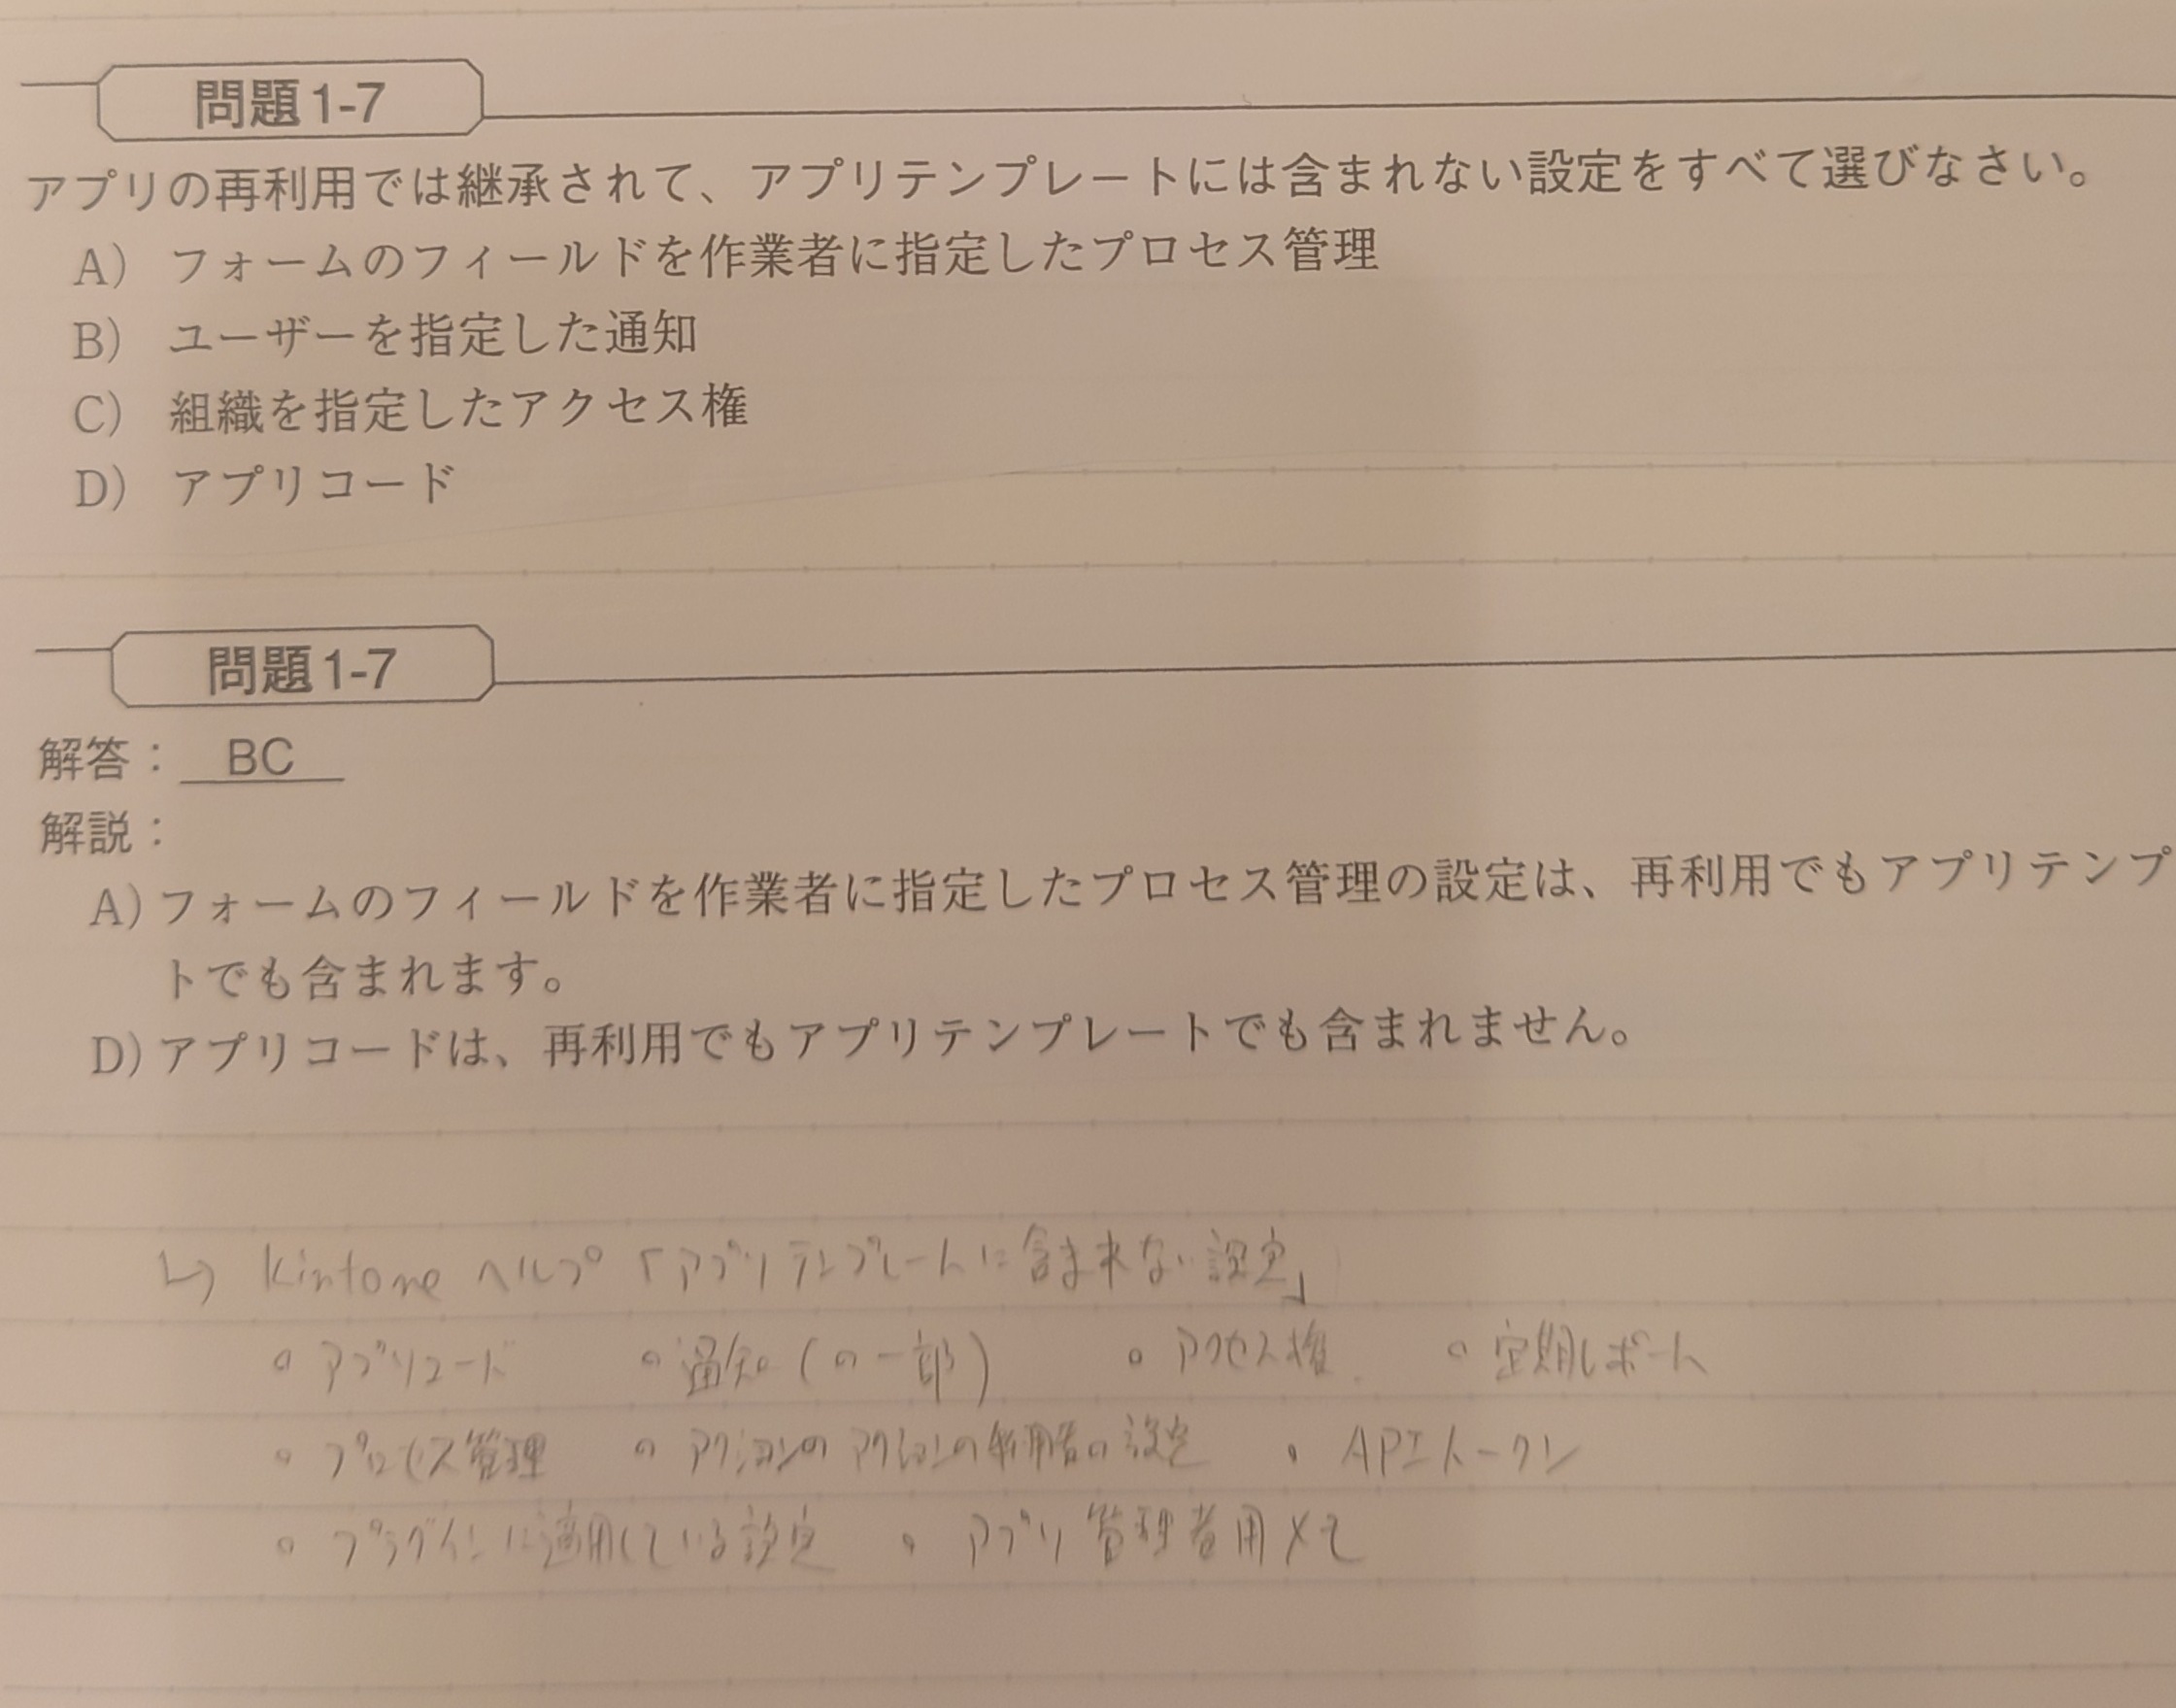 問題1-7
アプリの再利用では継承されて、アプリテンプレートには含まれない設定をすべて選びなさい。
A) フォームのフィールドを作業者に指定したプロセス管理
B) ユーザーを指定した通知
C) 組織を指定したアクセス権
D) アプリコード
問題1-7
解答： BC
解説：
A) フォームのフィールドを作業者に指定したプロセス管理の設定は、再利用でもアプリテンプ
トでも含まれます。
D) アプリコードは、再利用でもアプリテンプレートでも含まれません。
↳ kintone ヘルプ「アプリテンプレートに含まれない設定」
◦ アプリコード ◦ 通知(の一部) ◦ アクセス権 ◦ 定期レポート
◦ プロセス管理 ◦ アクションのアクションの利用者の設定 ◦ APIトークン
◦ プラグインに適用している設定 ◦ アプリ管理者用メモ